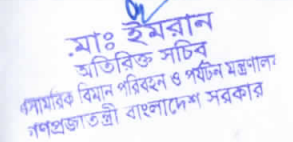 মোঃ ইমরান
অতিরিক্ত সচিব
বেসামরিক বিমান পরিবহন ও পর্যটন মন্ত্রণালয়
গণপ্রজাতন্ত্রী বাংলাদেশ সরকার